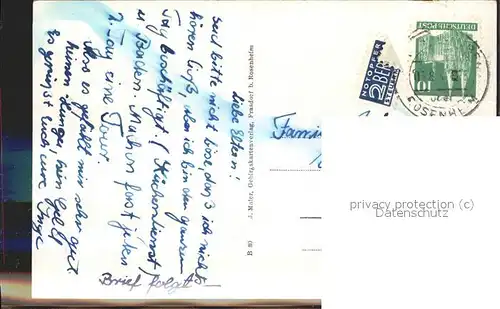 Liebe Eltern!
Seid bitte nicht böse, daß ich nichts
hören ließ, aber ich bin den ganzen
Tag beschäftigt (Küchendienst)
u. Baden. Machen fast jeden
2. Tag eine Tour.
Also es gefällt mir sehr gut
keinen Hunger, kein Geld
Es grüßt Euch eure Inge
Brief folgt
J. Mofer, Gebirgskartenverlag, Frasdorf b. Rosenheim
B 80
Famili
NOTOPFER
2 BERLIN
STEUERMARKE
DEUTSCHE POST
10
privacy protection (c)
Datenschutz